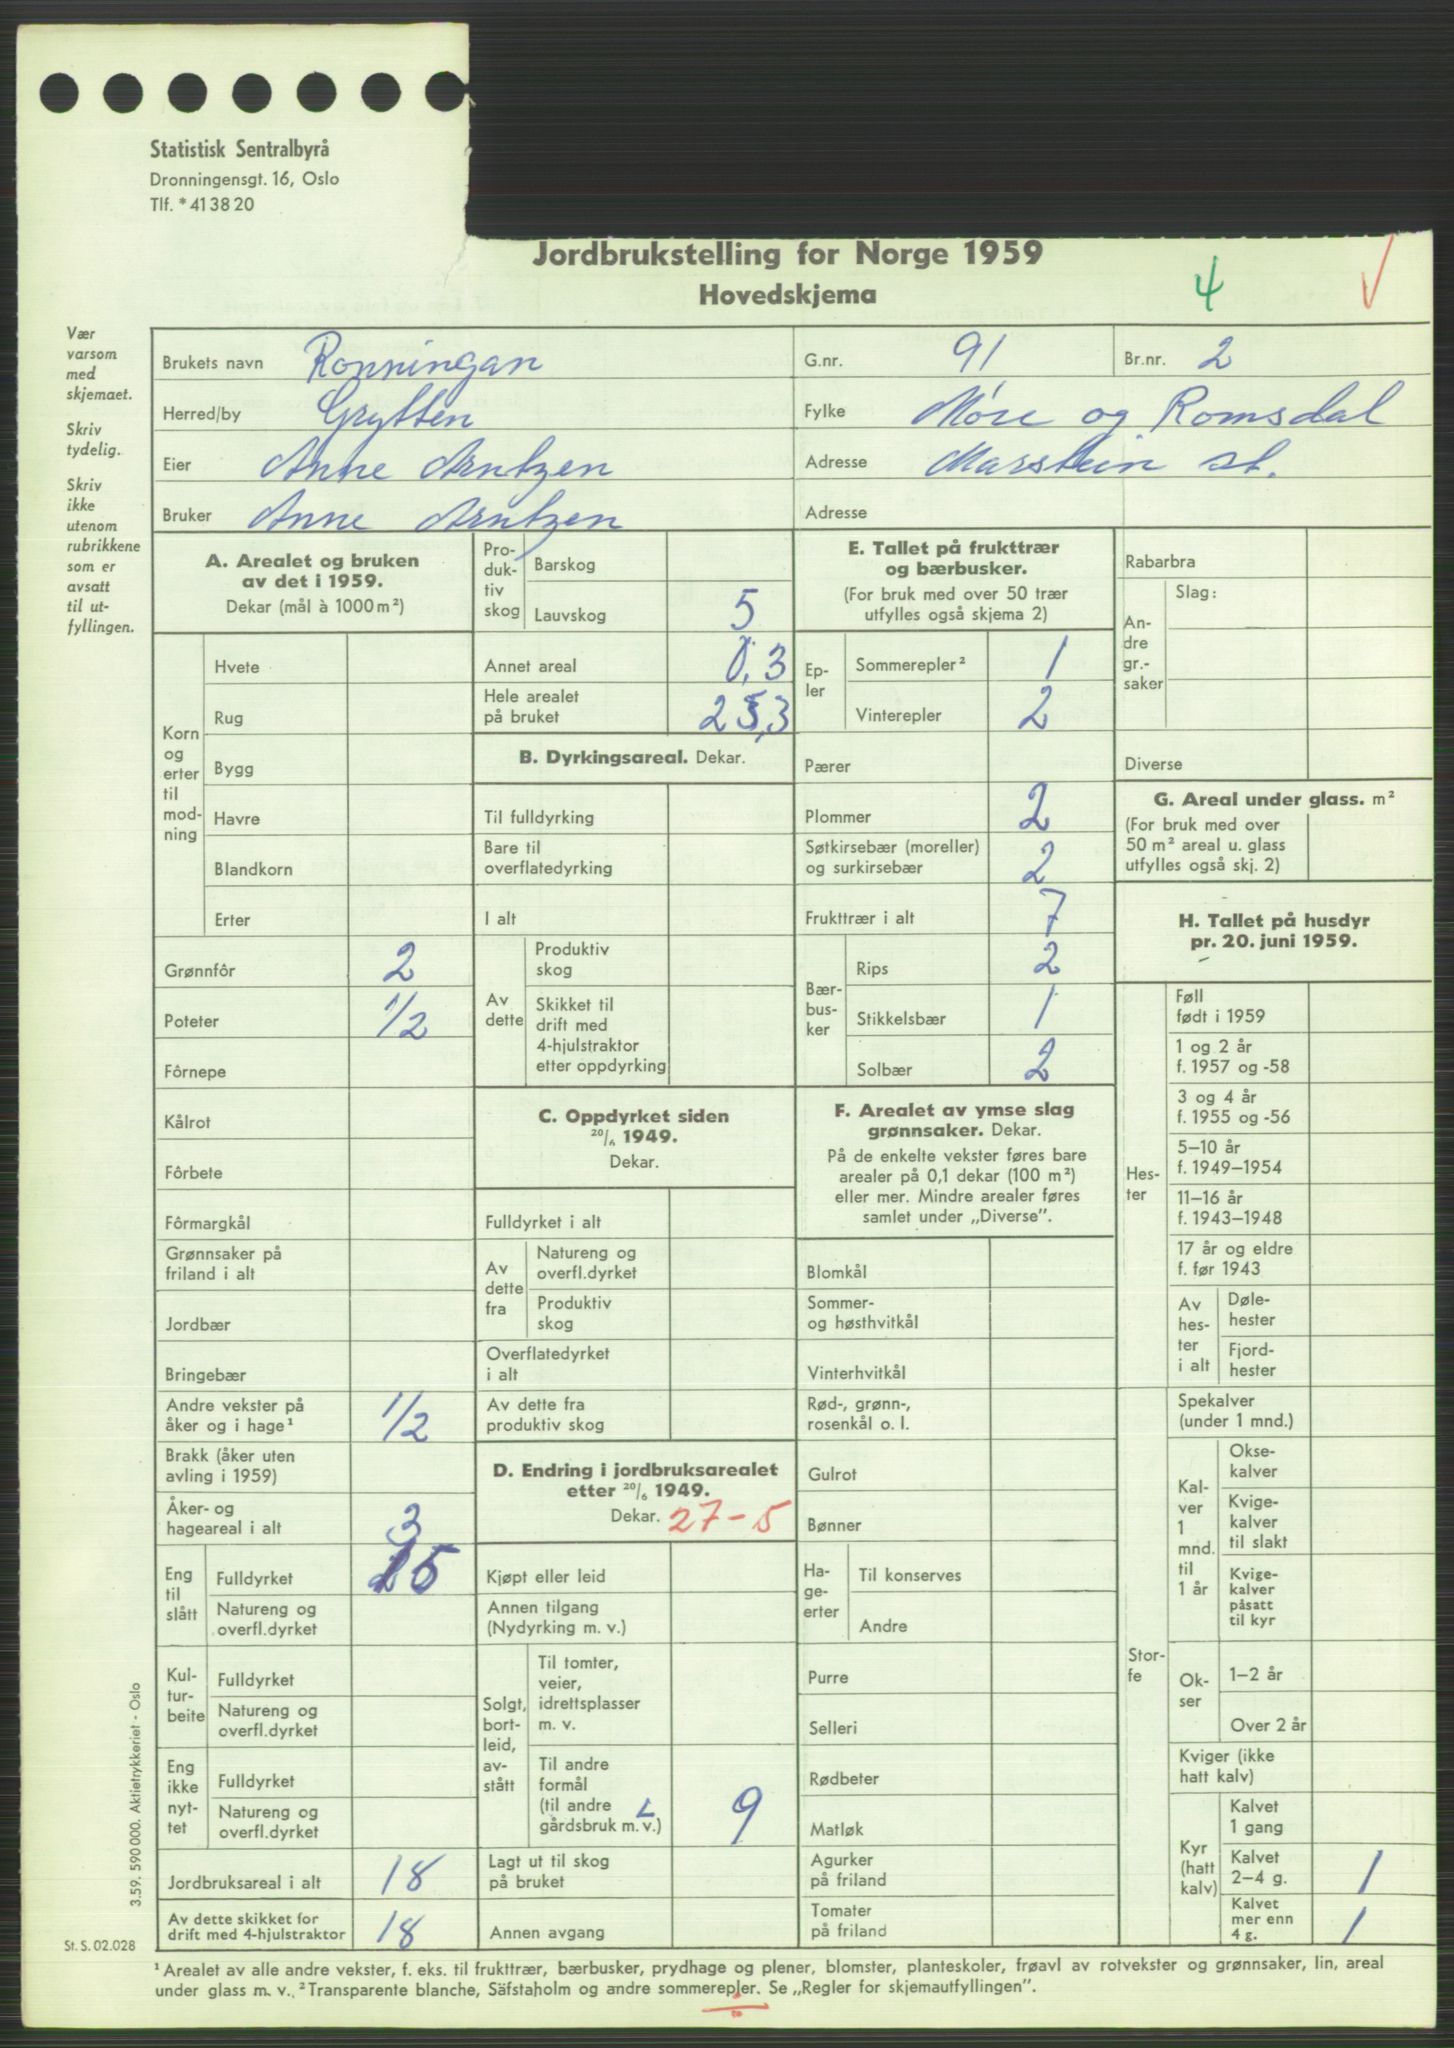 Statistisk Sentralbyrå
Dronningensgt. 16, Oslo
Tlf. *41 38 20
Jordbrukstelling for Norge 1959
Hovedskjema
4
Vær
varsom
med
skjemaet.
Skriv
tydelig.
Skriv
ikke
utenom
rubrikkene
som er
avsatt
til ut-
fyllingen.
Brukets navn Ronningan
G.nr. 91
Br.nr. 2
Herred/by Grytten
Fylke Møre og Romsdal
Eier Anne Arntzen
Adresse Marstein st.
Bruker Anne Arntzen
Adresse
A. Arealet og bruken
av det i 1959.
Dekar (mål à 1000 m²)
Korn
og
erter
til
mod-
ning
Hvete
Rug
Bygg
Havre
Blandkorn
Erter
Grønnfôr 2
Poteter 1/2
Fôrnepe
Kålrot
Fôrbete
Fôrmargkål
Grønnsaker på
friland i alt
Jordbær
Bringebær
Andre vekster på
åker og i hage¹ 1/2
Brakk (åker uten
avling i 1959)
Åker- og
hageareal i alt 3
Eng
til
slått
Fulldyrket 15
Natureng og
overfl.dyrket
Kul-
tur-
beite
Fulldyrket
Natureng og
overfl.dyrket
Eng
ikke
nyt-
tet
Fulldyrket
Natureng og
overfl.dyrket
Jordbruksareal i alt 18
Av dette skikket for
drift med 4-hjulstraktor 18
Pro-
duk-
tiv
skog
Barskog
Lauvskog 5
Annet areal 0,3
Hele arealet
på bruket 23,3
B. Dyrkingsareal. Dekar.
Til fulldyrking
Bare til
overflatedyrking
I alt
Av
dette
Produktiv
skog
Skikket til
drift med
4-hjulstraktor
etter oppdyrking
C. Oppdyrket siden
20/6 1949.
Dekar.
Fulldyrket i alt
Av
dette
fra
Natureng og
overfl.dyrket
Produktiv
skog
Overflatedyrket
i alt
Av dette fra
produktiv skog
D. Endring i jordbruksarealet
etter 20/6 1949.
Dekar. 27-5
Kjøpt eller leid
Annen tilgang
(Nydyrking m. v.)
Solgt,
bort-
leid,
av-
stått
Til tomter,
veier,
idrettsplasser
m. v.
Til andre
formål
(til andre
gårdsbruk m. v.) 9
Lagt ut til skog
på bruket
Annen avgang
E. Tallet på frukttrær
og bærbusker.
(For bruk med over 50 trær
utfylles også skjema 2)
Ep-
ler
Sommerepler² 1
Vinterepler 2
Pærer
Plommer 2
Søtkirsebær (moreller)
og surkirsebær 2
Frukttrær i alt 7
Bær-
bus-
ker
Rips 2
Stikkelsbær 1
Solbær 2
F. Arealet av ymse slag
grønnsaker. Dekar.
På de enkelte vekster føres bare
arealer på 0,1 dekar (100 m²)
eller mer. Mindre arealer føres
samlet under „Diverse”.
Blomkål
Sommer-
og høsthvitkål
Vinterhvitkål
Rød-, grønn-,
rosenkål o. l.
Gulrot
Bønner
Ha-
ge-
erter
Til konserves
Andre
Purre
Selleri
Rødbeter
Matløk
Agurker
på friland
Tomater
på friland
Rabarbra
An-
dre
gr.-
saker
Slag:
Diverse
G. Areal under glass. m²
(For bruk med over
50 m² areal u. glass
utfylles også skj. 2)
H. Tallet på husdyr
pr. 20. juni 1959.
Hes-
ter
Føll
født i 1959
1 og 2 år
f. 1957 og -58
3 og 4 år
f. 1955 og -56
5–10 år
f. 1949–1954
11–16 år
f. 1943–1948
17 år og eldre
f. før 1943
Av
hes-
ter
i alt
Døle-
hester
Fjord-
hester
Stor-
fe
Spekalver
(under 1 mnd.)
Kal-
ver
1
mnd.
til
1 år
Okse-
kalver
Kvige-
kalver
til slakt
Kvige-
kalver
påsatt
til kyr
Ok-
ser
1–2 år
Over 2 år
Kviger (ikke
hatt kalv)
Kyr
(hatt
kalv)
Kalvet
1 gang
Kalvet
2–4 g. 1
Kalvet
mer enn
4 g. 1
3.59. 590 000. Aktietrykkeriet - Oslo
St. S. 02.028
¹ Arealet av alle andre vekster, f. eks. til frukttrær, bærbusker, prydhage og plener, blomster, planteskoler, frøavl av rotvekster og grønnsaker, lin, areal
under glass m. v. ² Transparente blanche, Säfstaholm og andre sommerepler. Se „Regler for skjemautfyllingen”.